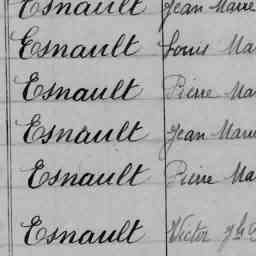 Esnault Jean Marie
Esnault Louis Ma
Esnault Pierre Ma
Esnault Jean Marie
Esnault Pierre Ma
Esnault Victor